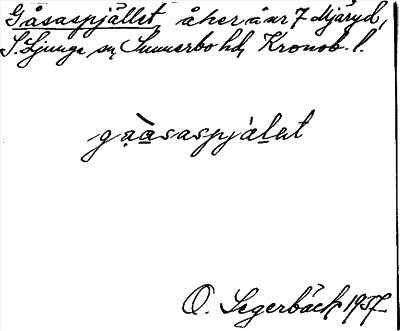 Gåsaspjället, åker å nr 7 Mjäryd,
S. Ljunga sn, Sunnerbo hd, Kronob. l.
gàasaspjàlet
O. Segerbäck 1937